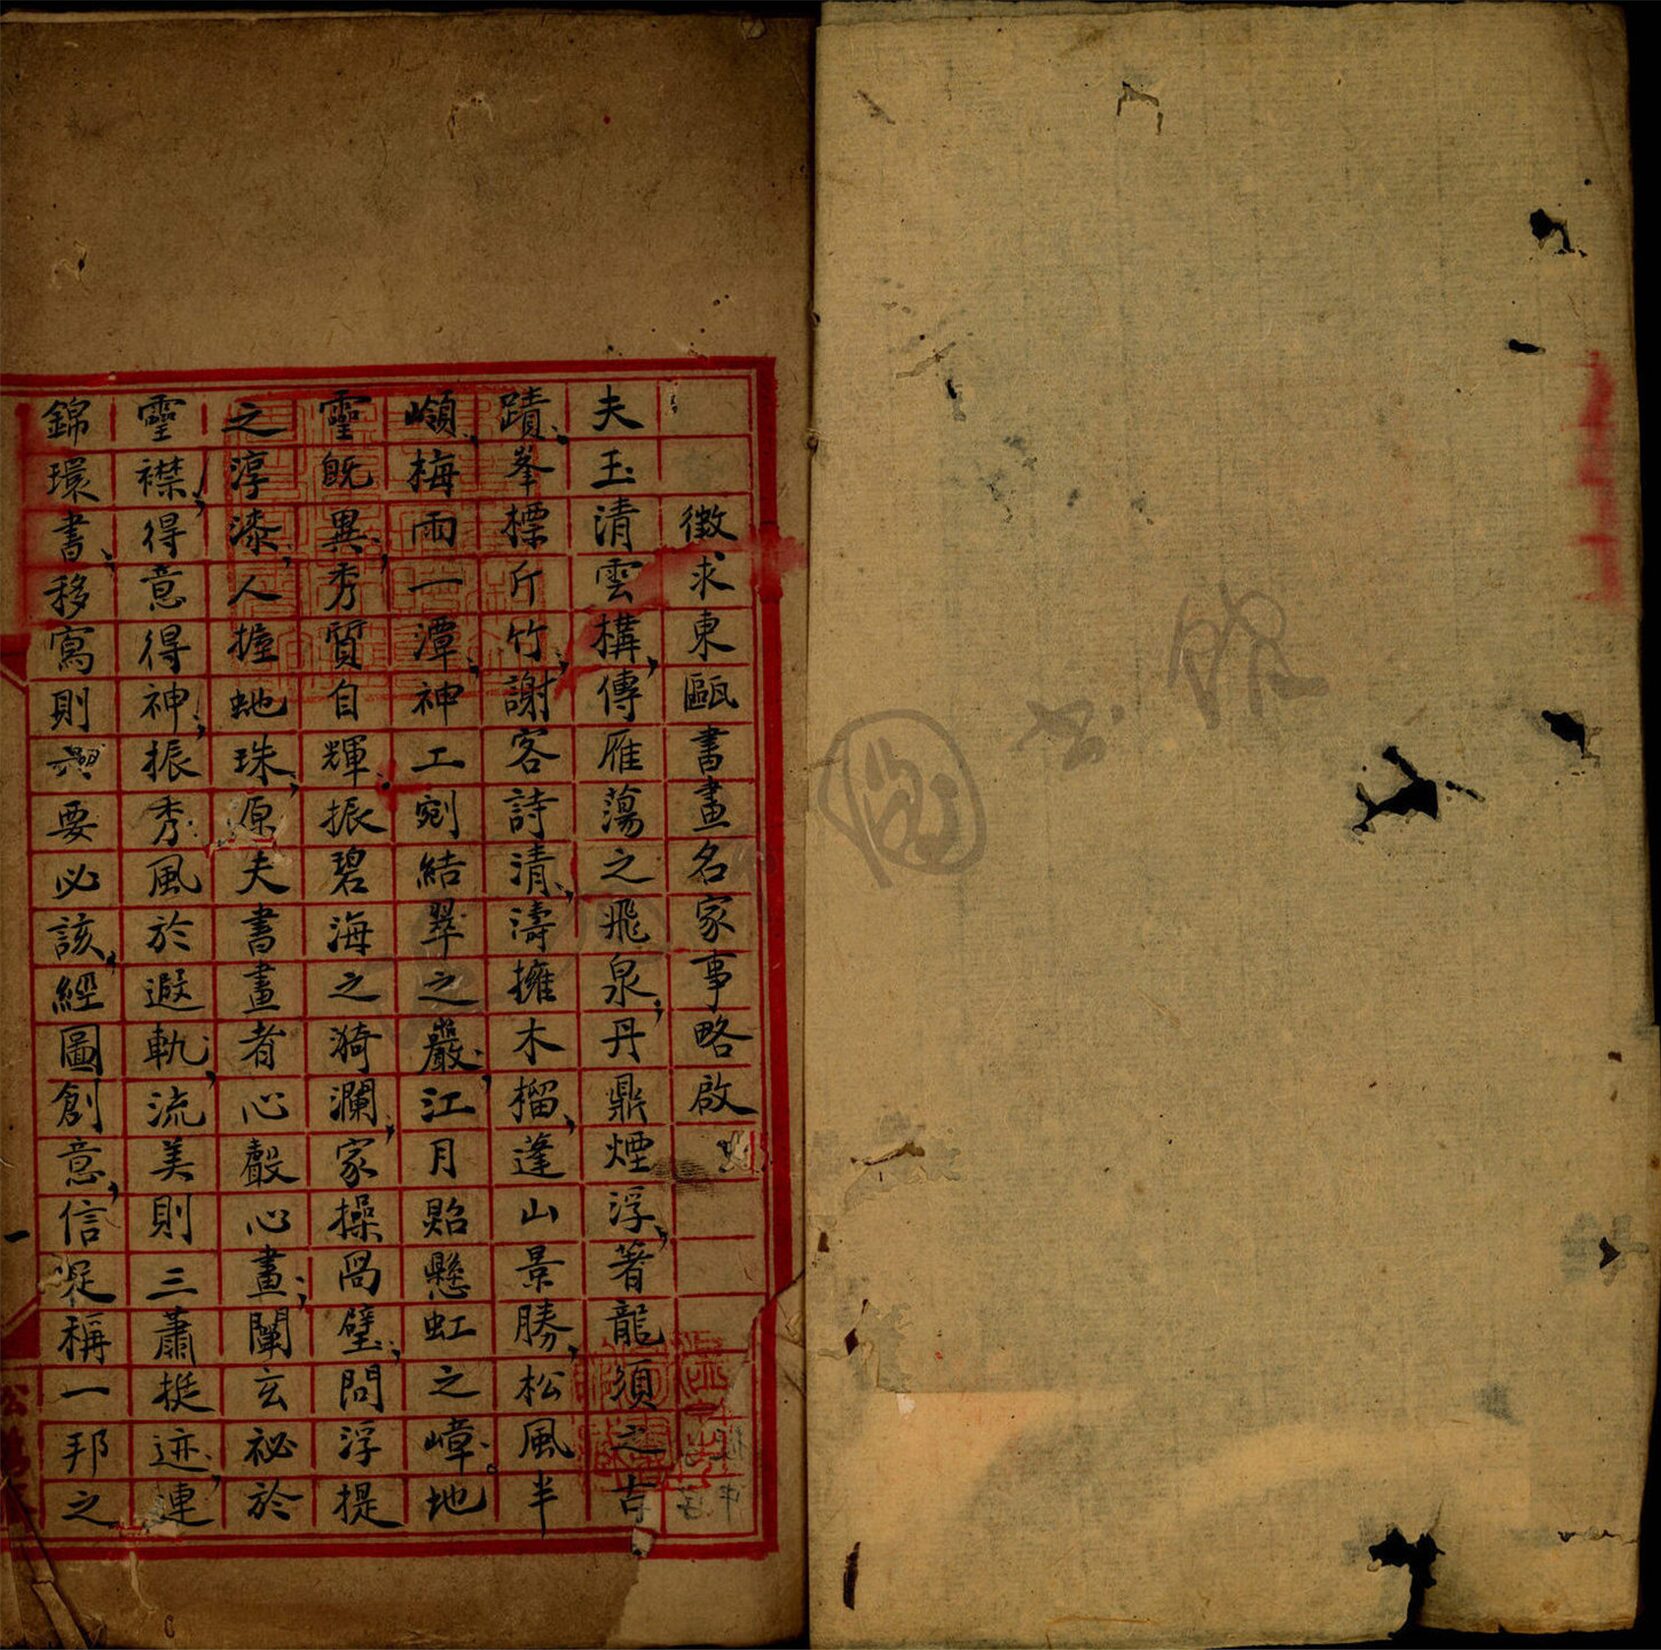 徵求東甌書畫名家事略啟
夫玉清雲構，傳雁蕩之飛泉；丹鼎煙浮，著龍須之古
蹟；峯標斤竹，謝客詩清，濤擁木榴，蓬山景勝，松風半
嶺，梅雨一潭，神工剜結翠之巖，江月貽懸虹之嶂。地
靈既異，秀質自輝，振碧海之漪瀾，家操咼璧；問浮提
之淳漆，人握虵珠，原夫書畫者心聲心畫；闡玄祕於
靈襟，得意得神，振秀風於遐軌，流美則三蕭挺迹，連
錦環書，移寫則要必該，經圖創意，信足稱一邦之
一